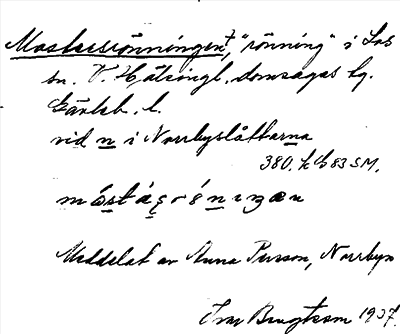 Mostessrönningen†, "rönning" i Los
sn. V. Hälsingl. domsagas tg.
Gävleb. l.
vid n i Norrbyslåttarna
380. k b 83 SM.
Meddelat av Anna Persson, Norrbyn
Ivar Bengtsson 1937.